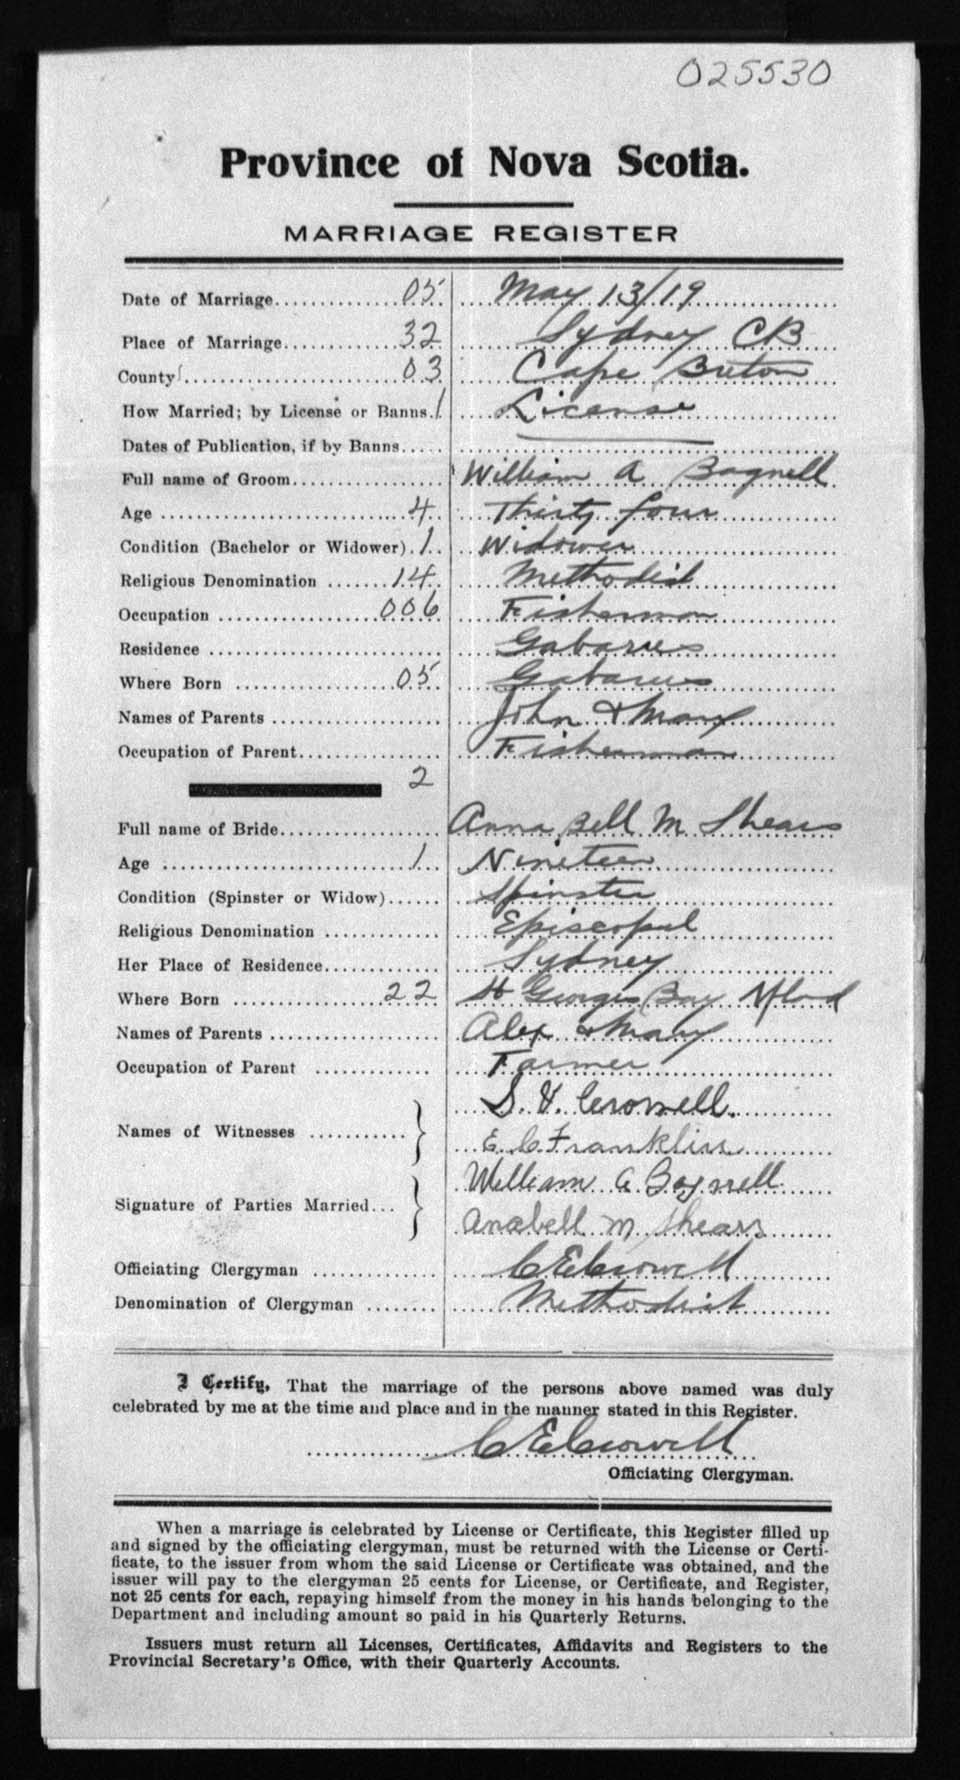 025530
Province of Nova Scotia.
MARRIAGE REGISTER
Date of Marriage 05 May 13/19
Place of Marriage 32 Sydney CB
County 03 Cape Breton
How Married; by License or Banns. 1 License
Dates of Publication, if by Banns
Full name of Groom William A Bagnell
Age 4 Thirty four
Condition (Bachelor or Widower). 1 Widower
Religious Denomination 14 Methodist
Occupation 006 Fisherman
Residence Gabarus
Where Born 05 Gabarus
Names of Parents John & Mary
Occupation of Parent Fisherman
2
Full name of Bride Anna Bell M Shears
Age 1 Nineteen
Condition (Spinster or Widow) Spinster
Religious Denomination Episcopal
Her Place of Residence Sydney
Where Born 22 St Georges Bay Nfld
Names of Parents Alex & Mary
Occupation of Parent Farmer
S. H. Crowell.
Names of Witnesses
E. C. Franklin
William A Bagnell
Signature of Parties Married
Anabell M Shears
Officiating Clergyman C E Crowell
Denomination of Clergyman Methodist
I Certify, That the marriage of the persons above named was duly
celebrated by me at the time and place and in the manner stated in this Register.
C E Crowell
Officiating Clergyman.
When a marriage is celebrated by License or Certificate, this Register filled up
and signed by the officiating clergyman, must be returned with the License or Certi-
ficate, to the issuer from whom the said License or Certificate was obtained, and the
issuer will pay to the clergyman 25 cents for License, or Certificate, and Register,
not 25 cents for each, repaying himself from the money in his hands belonging to the
Department and including amount so paid in his Quarterly Returns.
Issuers must return all Licenses, Certificates, Affidavits and Registers to the
Provincial Secretary's Office, with their Quarterly Accounts.